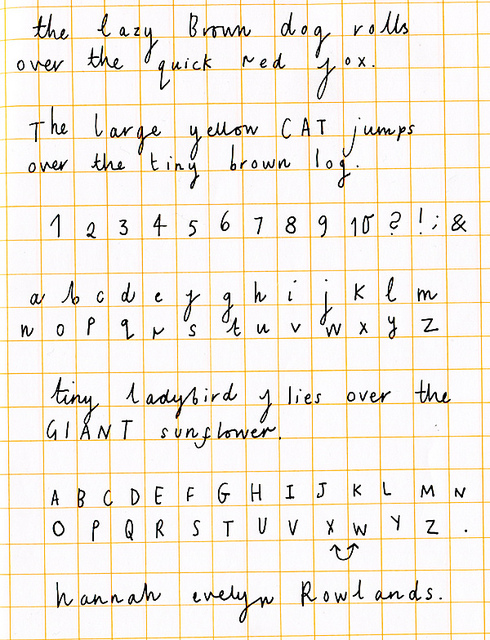 the lazy Brown dog rolls
over the quick red fox.
The large yellow CAT jumps
over the tiny brown log.
1 2 3 4 5 6 7 8 9 10 ? ! ; &
a b c d e f g h i j k l m
n o p q r s t u v w x y z
tiny ladybird flies over the
GIANT sunflower.
A B C D E F G H I J K L M N
O P Q R S T U V X W Y Z .
hannah evelyn Rowlands.